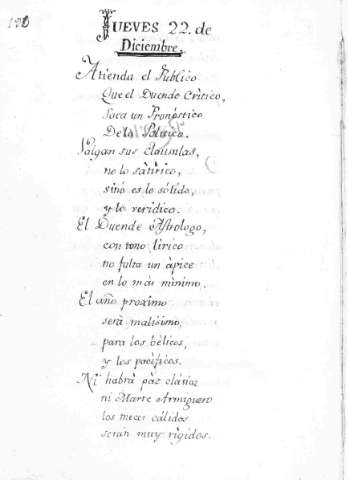 JUEVES 22. de
Diciembre.
Atienda el Publico
Que el Duende Crìtico,
Saca un Pronòstico
De la Polìtica.
Valgan sus clausulas,
no lo satìrico,
sinò es lo sòlido,
y lo verìdico.
El Duende Astrologo,
con tono lirico
no falta un àpice
en lo màs mìnimo.
El año proximo
serà malìsimo,
para los bèlicos,
y los pacìficos.
Ni habrà pàz clàsica
ni Marte Armigero
los meses càlidos
seràn muy rìgidos.